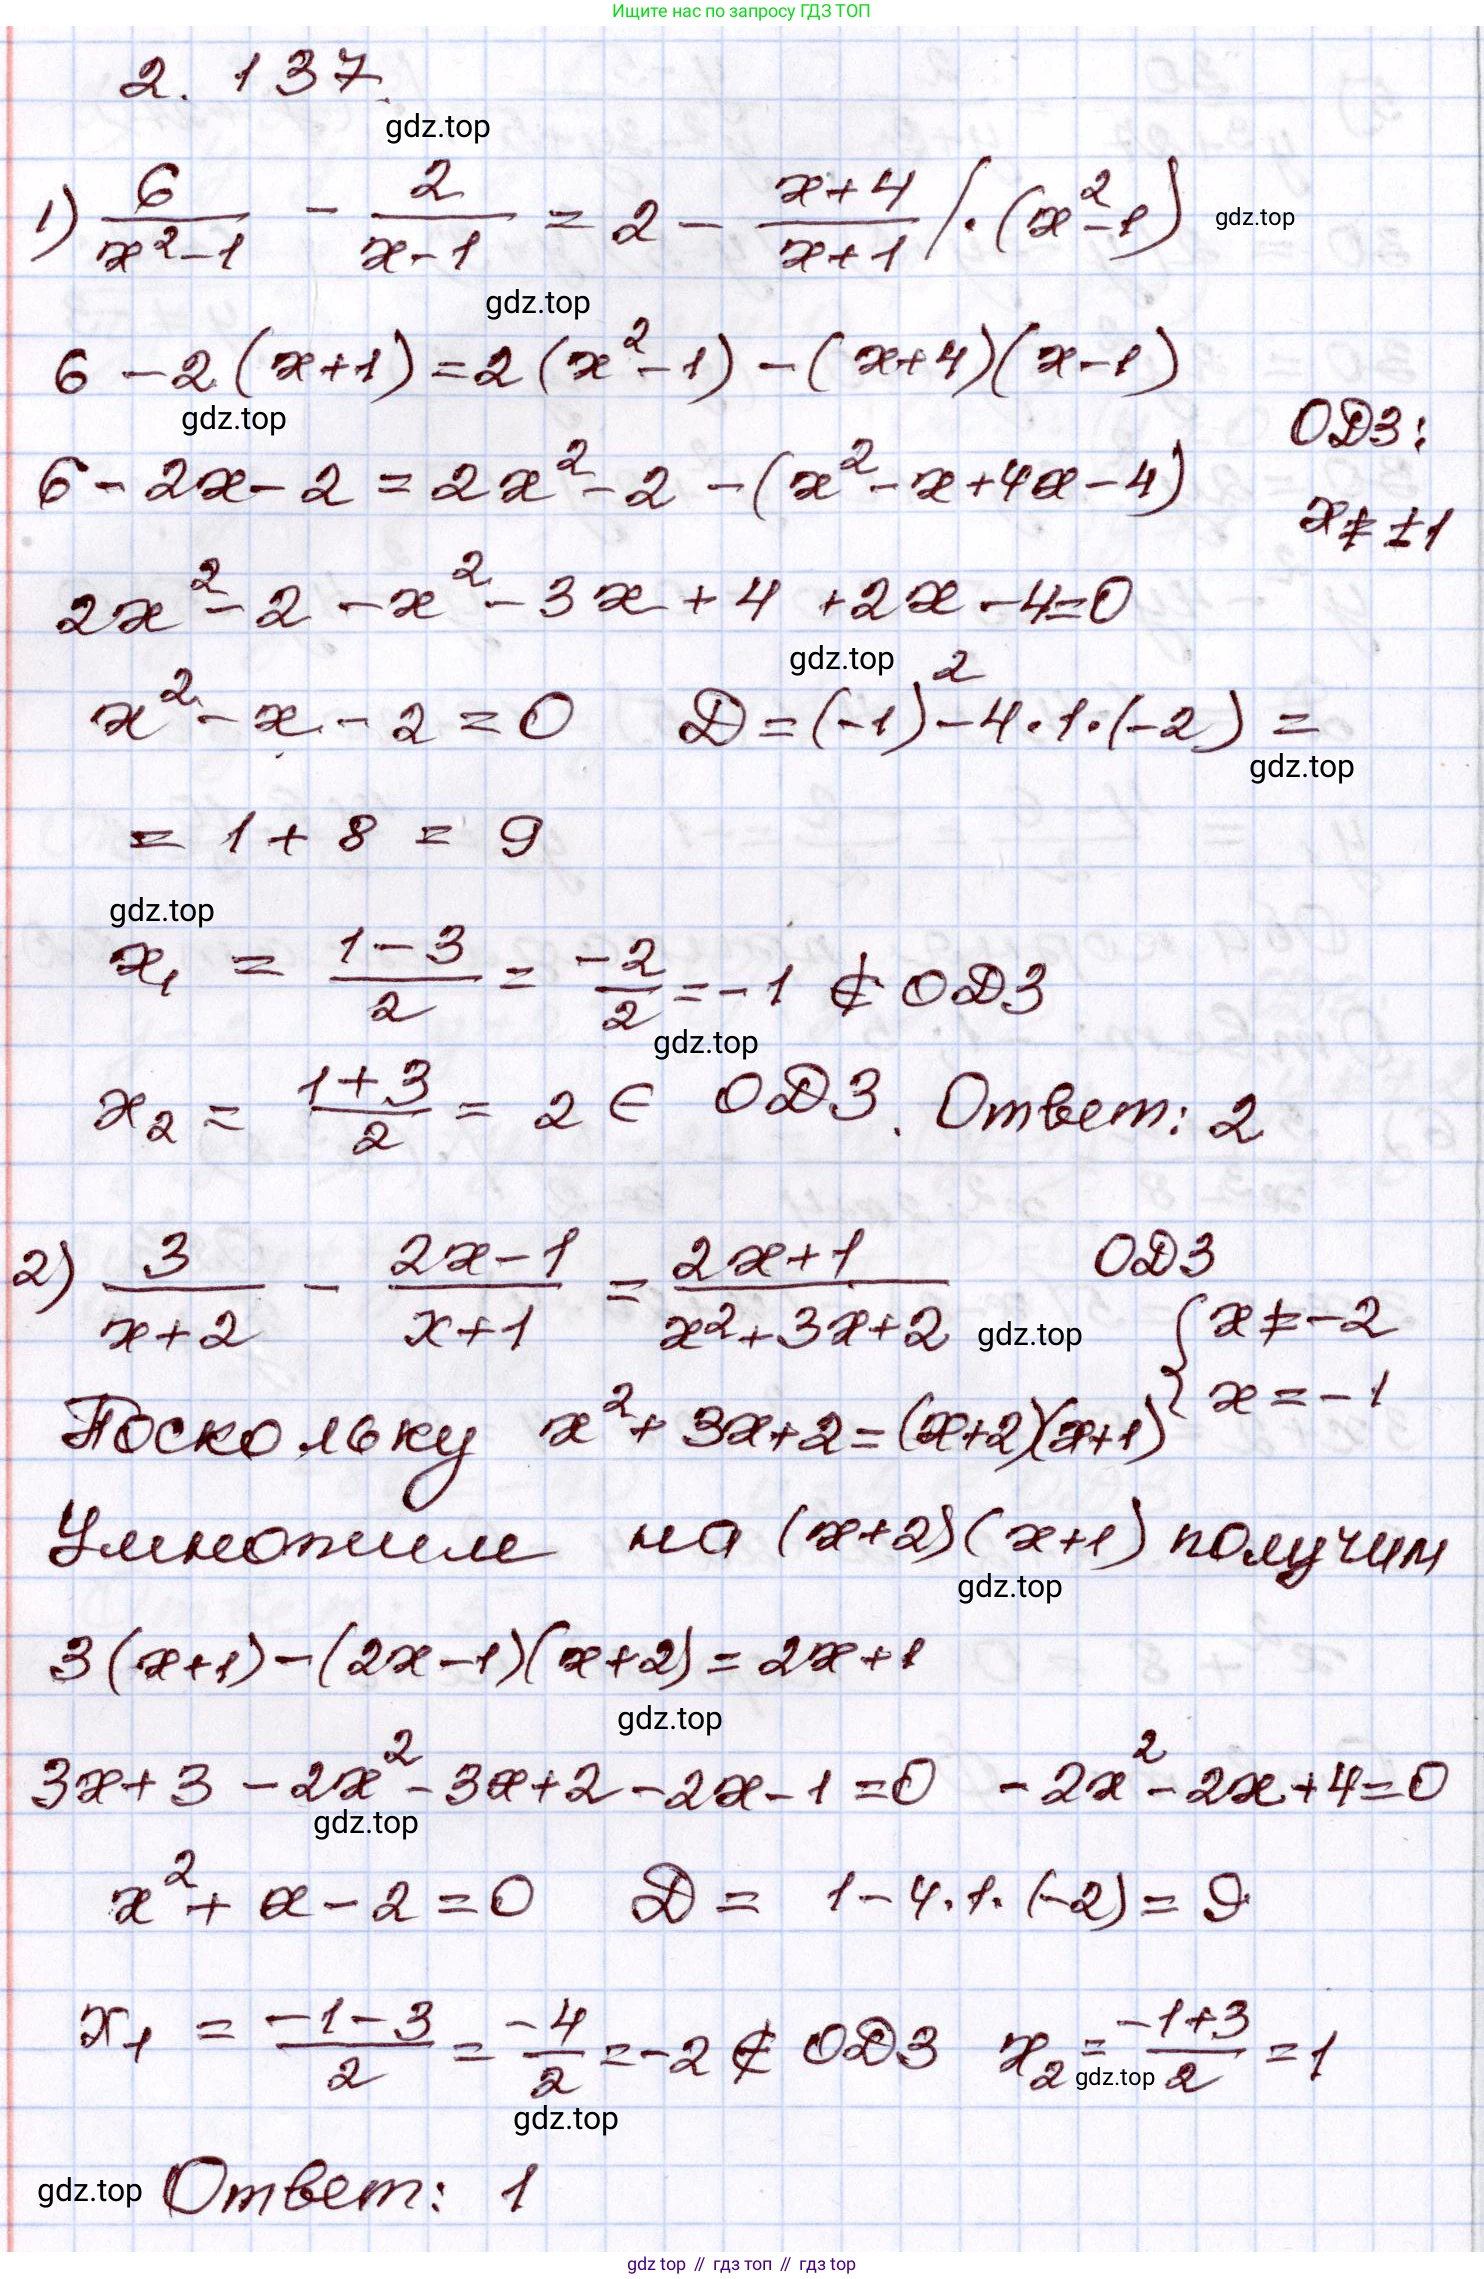 Ищите нас по запросу ГДЗ ТОП
2. 137.
gdz.top
1) 6/(x²-1) - 2/(x-1) = 2 - (x+4)/(x+1) / · (x²-1)
gdz.top
gdz.top
6 - 2(x+1) = 2(x²-1) - (x+4)(x-1)
gdz.top
ОДЗ:
6 - 2x - 2 = 2x² - 2 - (x² - x + 4x - 4)
x ≠ ±1
2x² - 2 - x² - 3x + 4 + 2x - 4 = 0
gdz.top
x² - x - 2 = 0 D = (-1)² - 4·1·(-2) =
gdz.top
= 1 + 8 = 9
gdz.top
x₁ = (1-3)/2 = -2/2 = -1 ∉ ОДЗ
gdz.top
x₂ = (1+3)/2 = 2 ∈ ОДЗ. Ответ: 2
2) 3/(x+2) - (2x-1)/(x+1) = (2x+1)/(x²+3x+2) ОДЗ
gdz.top
{ x ≠ -2
x = -1
Поскольку x² + 3x + 2 = (x+2)(x+1)
Умножим на (x+2)(x+1) получим
gdz.top
3(x+1) - (2x-1)(x+2) = 2x+1
gdz.top
3x + 3 - 2x² - 3x + 2 - 2x - 1 = 0 -2x² - 2x + 4 = 0
gdz.top
x² + x - 2 = 0 D = 1 - 4·1·(-2) = 9
x₁ = (-1-3)/2 = -4/2 = -2 ∉ ОДЗ x₂ = (-1+3)/2 = 1
gdz.top
gdz.top
gdz.top
Ответ: 1
gdz top // гдз топ // гдз top